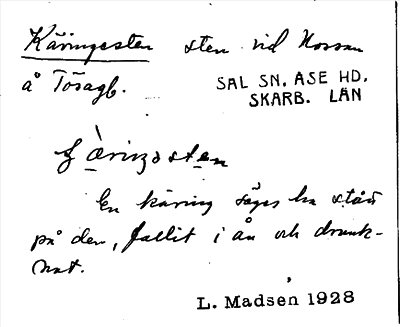 Käringesten sten vid Nossan
å Tösagb.
SAL SN. ASE HD.
SKARB. LÄN
En käring säges ha stått
på den, fallit i ån och drunk-
nat.
L. Madsen 1928